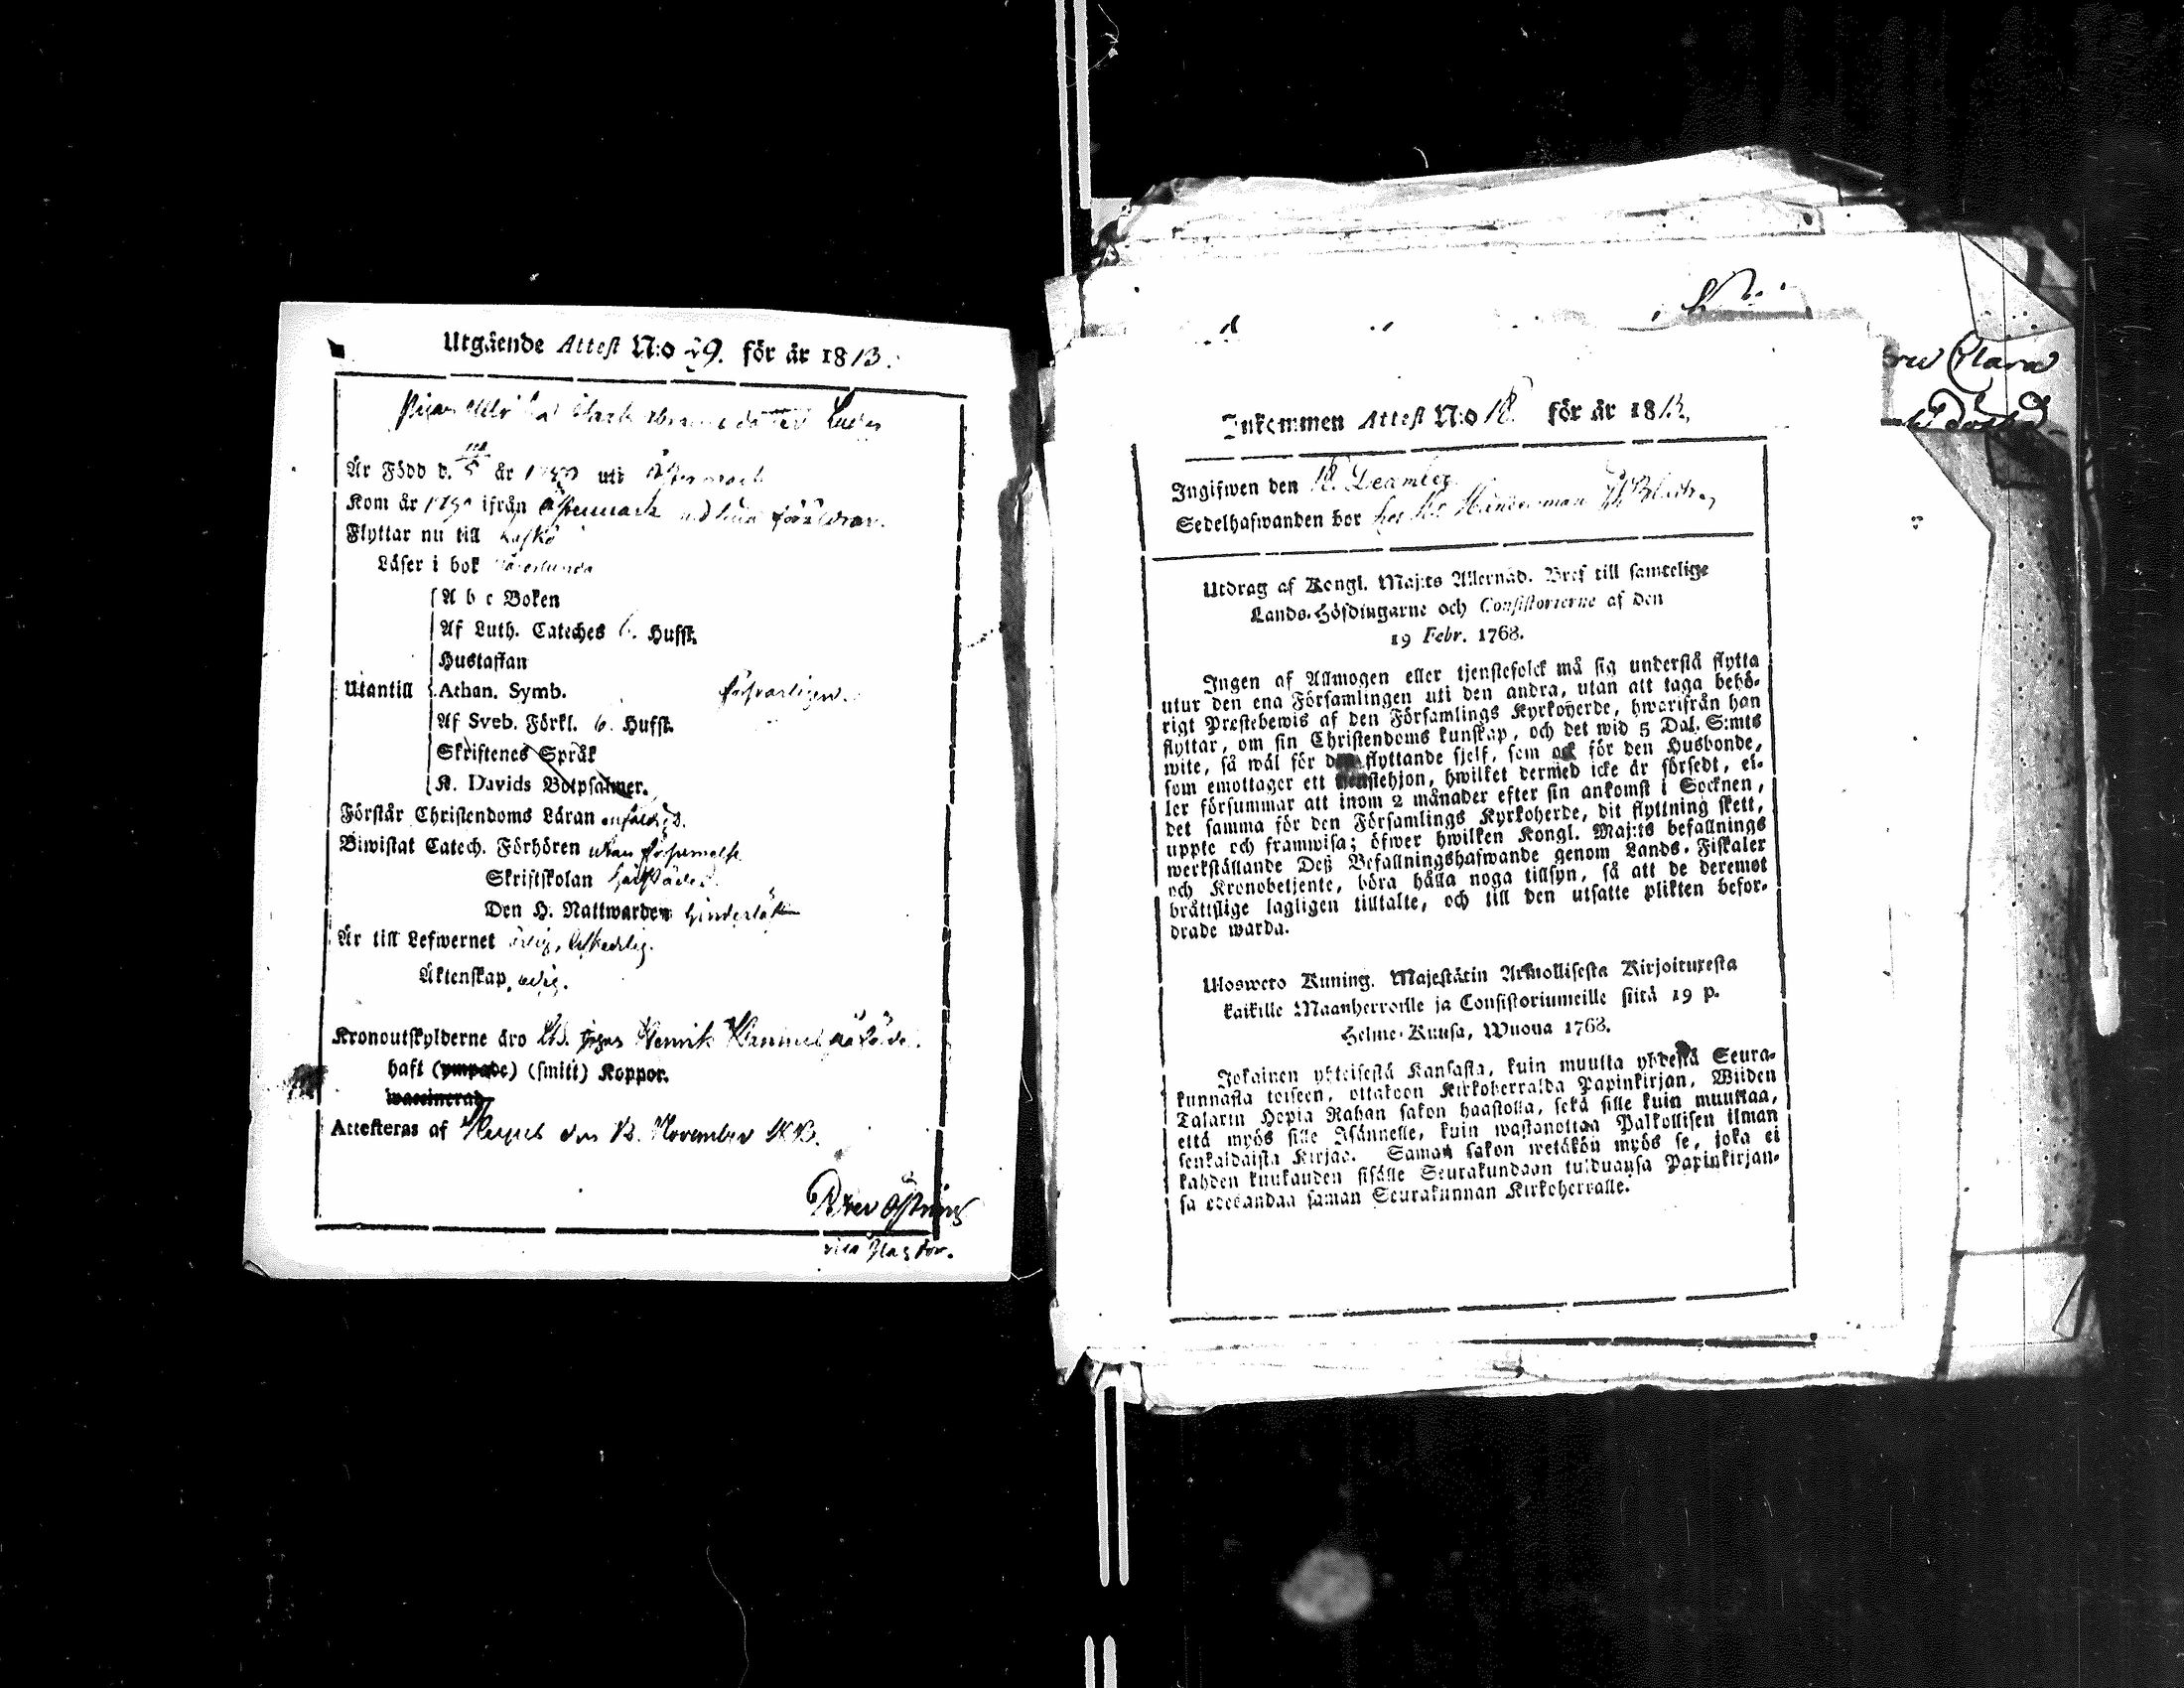 Utgående Attest N:o 29. för år 1813.
Är Född d. 5 år uti Östermark
Kom år 1790 ifrån Östermark med sina föräldrar.
Flyttar nu till Kaskö
Läser i bok
A b c Boken
Af Luth. Cateches 6. Hufst.
Hustaflan
Utantill Athan. Symb. försvarligen.
Af Sveb. Förkl. 6. Hufst.
Skriftenes Språk
K. Davids Botpsalmer.
Förstår Christendoms Läran enfaldigt.
Biwistat Catech. Förhören utan försummelse
Skriftskolan
Den H. Nattwarden
Är till Lefwernet ärlig, beskedlig.
Äktenskap, ledig.
Kronoutskylderne äro Henrik
haft (ympade) (smitt) Koppor.
waccinerad
Attesteras af den 13. November 1813.
Inkommen Attest N:o 18. för år 1813.
Ingifwen den 18. December
Sedelhafwanden bor hos
Utdrag af Kongl. Maj:ts Allernåd. Bref till samtelige
Lands-Höfdingarne och Consistorierne af den
19 Febr. 1768.
Ingen af Allmogen eller tjenstefolck må sig understå flytta
utur den ena Församlingen uti den andra, utan att taga behö-
rigt Prestebewis af den Församlings Kyrkoherde, hwarifrån han
flyttar, om sin Christendoms kunskap, och det wid 5 Dal. S:mts
wite, så wäl för den flyttande sjelf, som ock för den Husbonde,
som emottager ett tjenstehjon, hwilket dermed icke är försedt, el-
ler försummar att inom 2 månader efter sin ankomst i Socknen,
det samma för den Församlings Kyrkoherde, dit flyttning skett,
uppte och framwisa; öfwer hwilken Kongl. Maj:ts befallnings
werkställande Deß Befallningshafwande genom Lands-Fiskaler
och Kronobetjente, böra hålla noga tillsyn, så att de deremot
bråttslige lagligen tilltalte, och till den utsatte plikten befor-
drade warda.
Uloswето Kuning. Majestätin Armollisesta Kirjoituxesta
kaikille Maanherroille ja Consistoriumeille siitä 19 p.
Helme-Kuusa, Wuona 1768.
Jokainen yhteisestä Kansasta, kuin muutta yhdestä Seura-
kunnasta toiseen, ottakoon Kirkoherralda Papinkirjan, Wiiden
Talarin Hopia Rahan sakon haastolla, sekä sille kuin muuttaa,
että myös sille Isännelle, kuin wastanottaa Palkollisen ilman
senkaldaista Kirjaa. Saman sakon wetäkön myös se, joka ei
kahden kuukauden sisälle Seurakundaan tulduansa Papinkirjan-
sa edesandaa saman Seurakunnan Kirkoherralle.